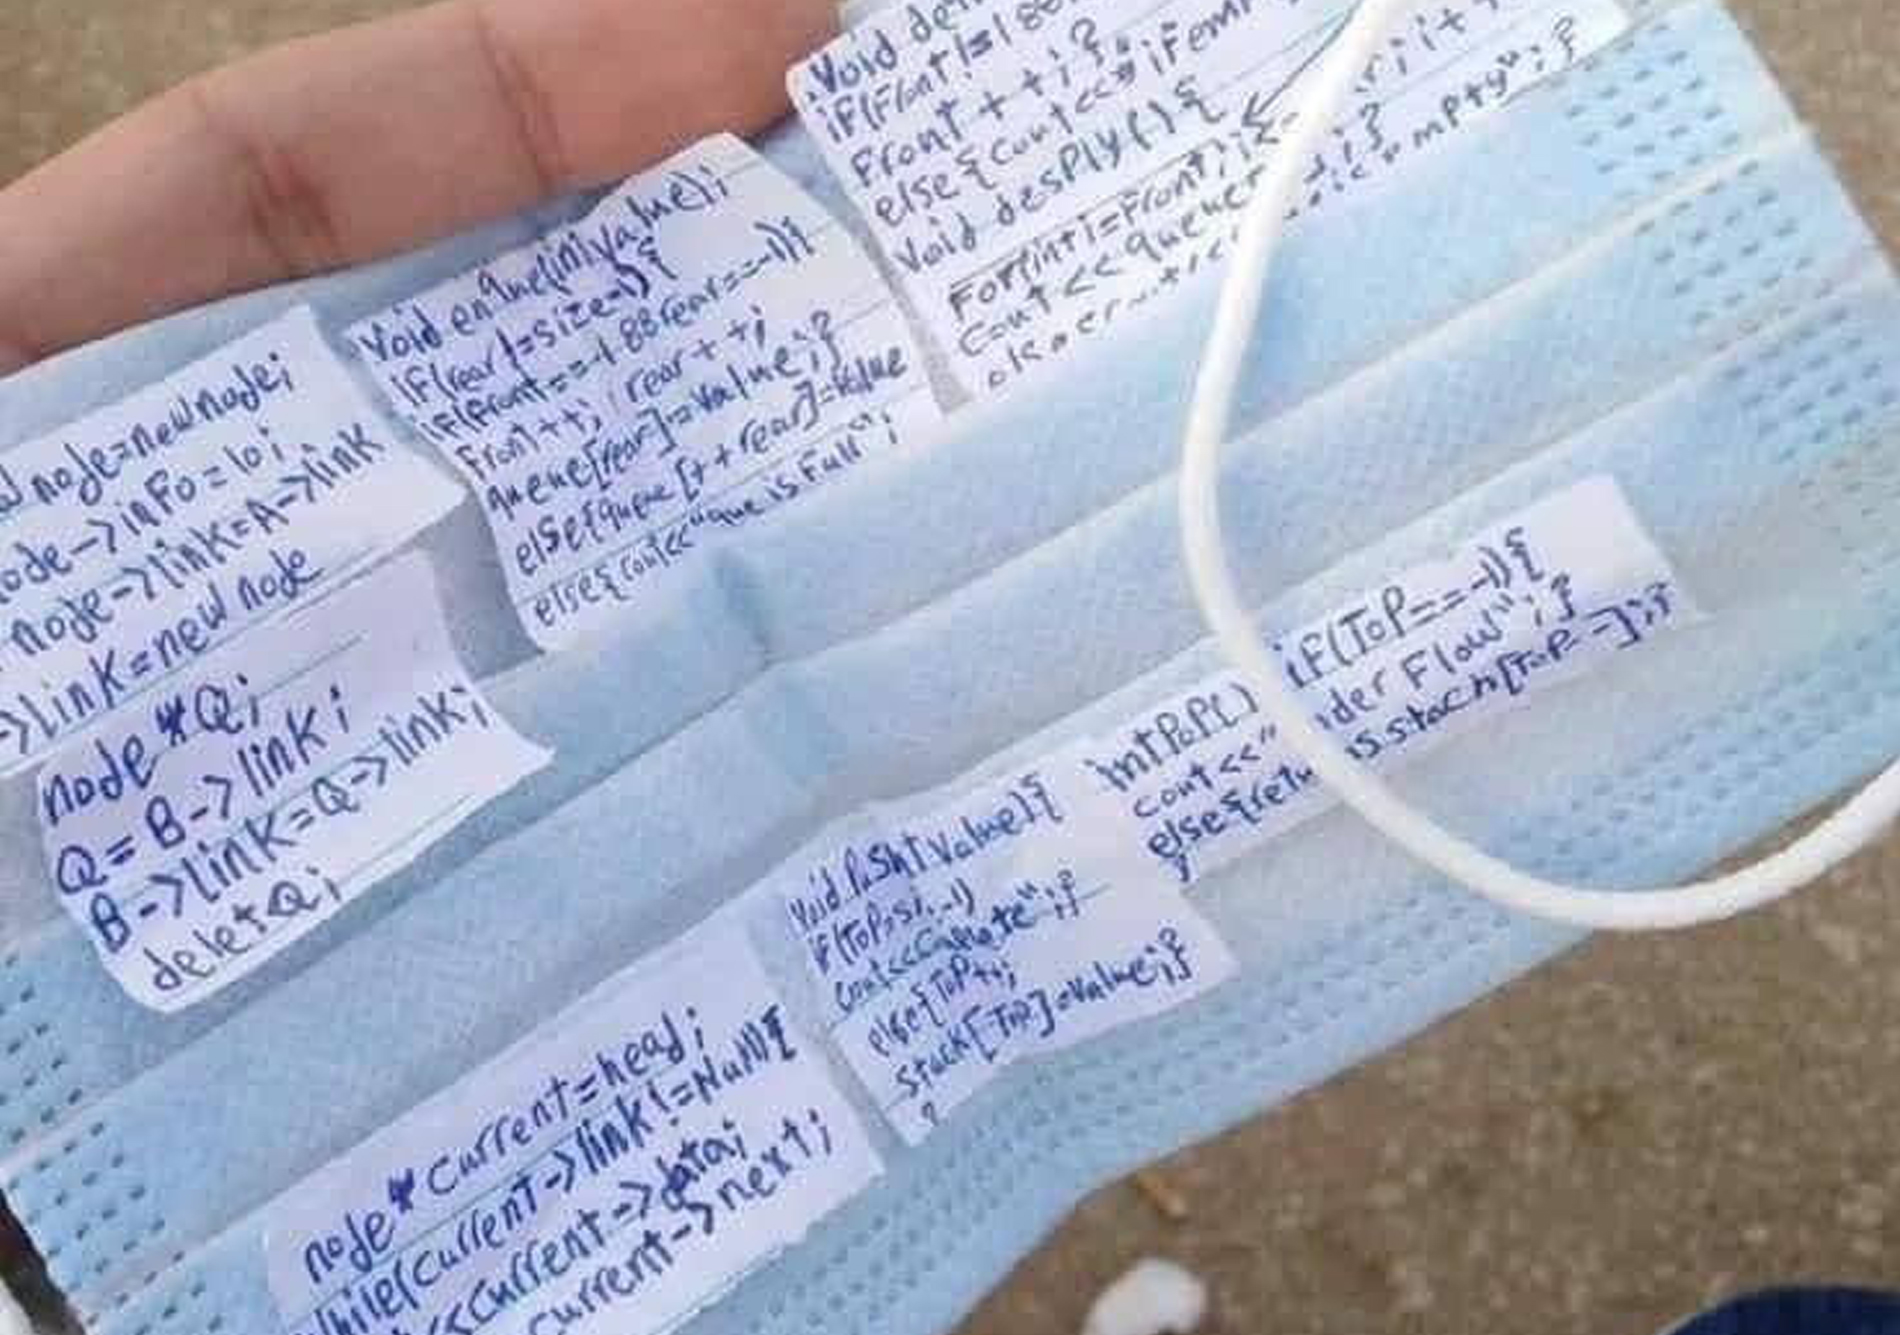 Void
if(Front!=-1 &&
Front++;}
else{cout<<"
Void desPly(){
For(int i=Front; i<
cout<<queue
mpty";}
Void enque(int value);
if(rear!=size-1){
if(Front==-1 && rear==-1){
Front++; rear++;
queue[rear]=value;}
else{queue[++rear]=value
else{cout<<"que is Full";
node=new node;
ode->inFo=10;
node->link=A->link
->link=new node
node *Q;
Q=B->link;
B->link=Q->link;
delet Q;
int PoP() if(ToP==-1){
cout<<" der Flow";}
else{retu s.stack[ToP-];}
}
Void value){
if(ToP
cout<<
else{ToP++;
stack[ToP]=value;}
}
node*current=head;
while(current->link!=Null){
<<current->data;
current->next;